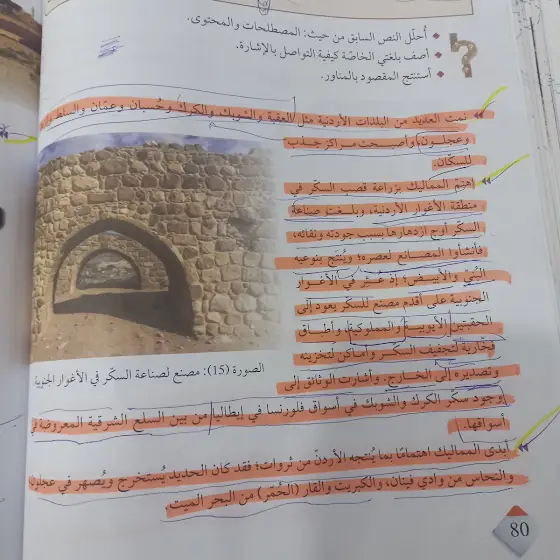 أحلّل النص السابق من حيث: المصطلحات والمحتوى.
أصف بلغتي الخاصّة كيفية التواصل بالإشارة.
أستنتج المقصود بالمناور.
نمت العديد من البلدات الأردنية مثل العقبة والشوبك والكرك وحُسبان وعمّان والسلط
وعجلون، وأصبحت مراكز جذب
للسكّان.
اهتمّ المماليك بزراعة قصب السكّر في
منطقة الأغوار الأردنية، وبلغت صناعة
السكّر أوج ازدهارها بسبب جودته ونقائه،
فأنشأوا المصانع لعصره؛ ويُنتج بنوعيه
البُنّي والأبيض؛ إذ عُثر في الأغوار
الجنوبية على أقدم مصنع للسكّر يعود إلى
الحقبتين الأيوبية والمملوكية، وأطباق
فخّارية لتجفيف السكّر وأماكن لتخزينه
وتصديره إلى الخارج. وأشارت الوثائق إلى
وجود سكّر الكرك والشوبك في أسواق فلورنسا في إيطاليا من بين السلع الشرقية المعروضة في
أسواقها.
الصورة (15): مصنع لصناعة السكّر في الأغوار الجنوبية
أبدى المماليك اهتمامًا بما يُنتجه الأردنّ من ثروات؛ فقد كان الحديد يُستخرج ويُصهر في عجلون
والنحاس من وادي فينان، والكبريت والقار (الحُمَر) من البحر الميت.
80